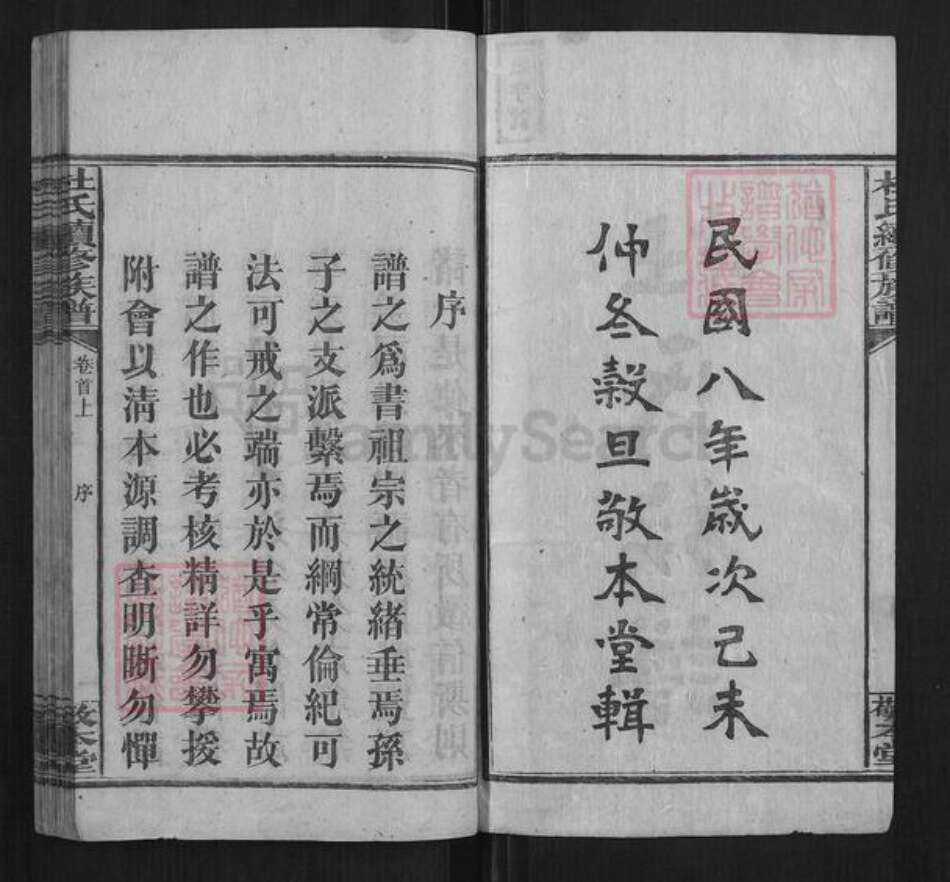 杜氏續修族譜
民國八年歲次己未
仲冬穀旦敬本堂輯
敬本堂
序
譜之爲書祖宗之統緒垂焉孫
子之支派繫焉而綱常倫紀可
法可戒之端亦於是乎寓焉故
譜之作也必考核精詳勿攀援
附會以淸本源調查明晰勿憚
杜氏續修族譜
卷首上
序
敬本堂
FamilySearch